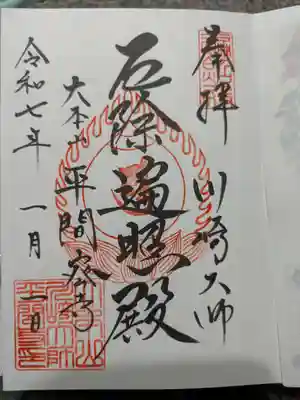 奉拝
川崎大師
厄除遍照殿
大本山平間寺
令和七年一月